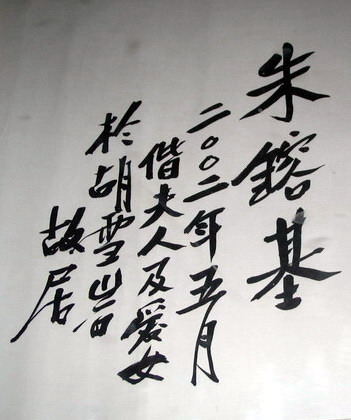 朱鎔基
二〇〇二年五月
偕夫人及爱女
於胡雪岩
故居